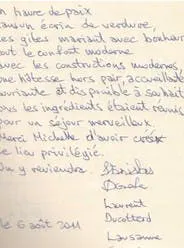 havre de paix
écrin de verdure,
es gîtes mariant avec bonheur
out le confort moderne
avec les constructions modernes,
ne hôtesse hors pair, accueillante
ouriante et disponible à souhait
ous les ingrédients étaient réunis
pour un séjour merveilleux.
Merci Michelle d'avoir créé
e lieu privilégié.
n y reviendra.
Laurent
Lausanne
le 6 août 2011